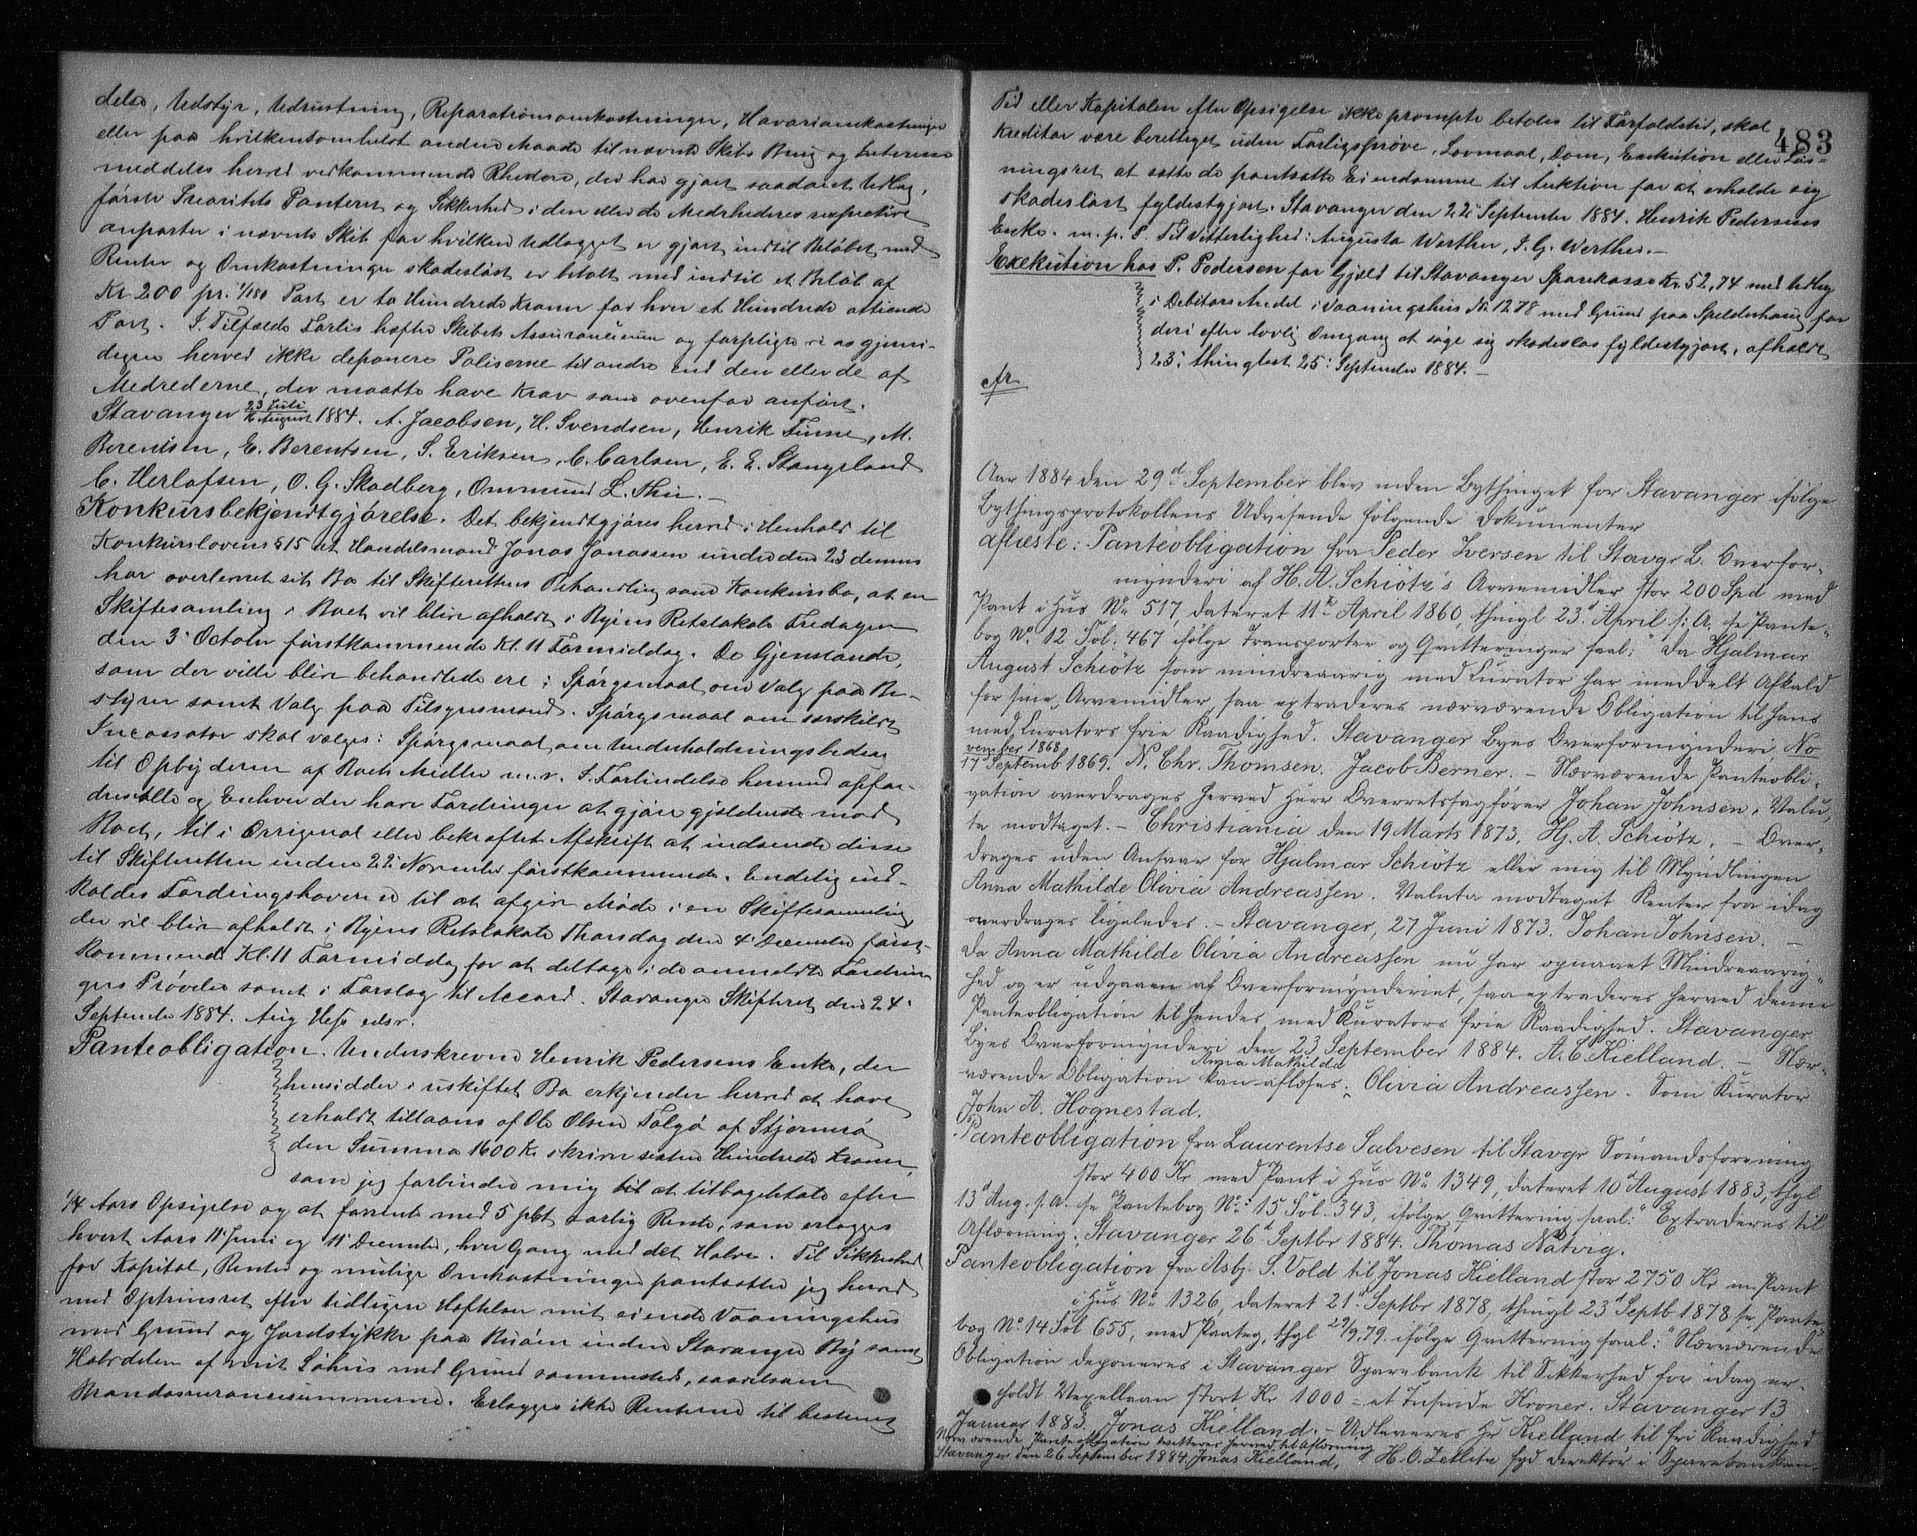 delse, Udstyr, Udrustning, Reparationsomkostninger, Havariomkostninger
eller paa hvilkensomhelst anden Maade til nævnte Skibs Brug og Interesse
meddeles herved vedkommende Rhedere, der har gjort saadant Udlæg,
første Prioritets Panteret og Sikkerhed i den eller de Medrhederes respective
anparter i nævnte Skib for hvilken Udlægget er gjort indtil Beløbet med
Renter og Omkostninger skadesløst er betalt med indtil et Beløb af
Kr 200 pr. 1/180 Part er to Hundrede Kroner for hver et Hundrede ottiende
Part. I Tilfælde Forlis hæfter Skibets Assurancesum og forpligter vi os gjensi-
digen herved ikke deponere Poliserne til andre end den eller de af
Medrederne, der maatte have Krav som ovenfor anført.
Stavanger 23 Juli August 1884. A. Jacobsen, H. Svendsen, Henrik Finne, M.
Berentsen, E. Berentsen, S. Eriksen, C. Carlsen, E. E. Stangeland
C. Herlofsen, O. G. Skadberg, Ommund L. Thu. –
Konkursbekjendtgjørelse. Det bekjendtgjøres herved i Henhold til
Konkurslovens § 15 at Handelsmand Jonas Jonassen under den 23 dennes
har overleveret sit Bo til Skifterettens Behandling som Konkursbo, at en
Skiftesamling i Boet vil blive afholdt i Byens Retslokale Fredagen
den 3' October førstkommende Kl. 11 Formiddag. De Gjenstande,
som der ville blive behandlede ere: Spørgsmaal om Valg paa Be-
styrer samt Valg paa Tilsynsmænd. Spørgsmaal om særskildt
Incassator skal vælges: Spørgsmaal om Underholdningsbidrag
til Opbyderen af Boets Midler m.v. I Forbindelse hermed opfor-
dres alle og Enhver der have Fordringer at gjøre gjældende mod
Boet, til i Original eller bekræftet Afskrift at indsende disse
til Skifteretten inden 22' November førstkommende. Endelig ind-
kaldes Fordringshaverne til at afgive Møde i en Skiftesamling
der vil blive afholdt i Byens Retslokale Thorsdag den 4' December først-
kommende Kl. 11 Formiddag for at deltage i de anmeldte Fordrin
gers Prøvelse samt i Forslag til Accord. Stavanger Skifteret den 24'
September 1884. Aug Hess edsv.
Panteobligation. Underskrevne Henrik Pedersens Enke, der
hensidder i uskiftet Bo erkjender herved at have
erholdt tillaans af Ole Olsen Talgø af Stjernerø
den Summa 1600 Kr skriver sexten Hundrede Kroner,
som jeg forbinder mig til at tilbagebetale efter
1/4 Aars Opsigelse og at forrente med 5 pCt aarlig Rente, som erlægges
hvert Aars 11' Juni og 11' December, hver Gang med det Halve. Til Sikkerhed
for Kapital, Renter og mulige Omkostninger pantsætter jeg herved
med Optrinsret efter tidligere Hæftelser mit eiende Vaaningshus
med Grund og Jordstykke paa Buøen inden Stavanger By samt
Halvdelen af mit Søhus med Grund sammesteds, saavelsom
Brandassurancesummerne. Erlægges ikke Renterne til bestemt
483
Tid eller Kapitalen efter Opsigelse ikke prompte betales til Forfaldstid, skal
Kreditor være berettiget uden Forligsprøve, Lovmaal, Dom, Exekution eller Løs-
ningsret at sætte de pantsatte Eiendomme til Auktion for at erholde sig
skadesløst fyldestgjort. Stavanger den 22' September 1884. Henrik Pedersens
Enke. m. p. P. Til Vitterlighed: Augusta Werther, I. G. Werther. –
Exekution hos P. Pedersen for Gjæld til Stavanger Sparekasse Kr. 52,74 med Udlæg
i Debitors Andel i Vaaningshus No 1278 med Grund paa Spilderhaug for
deri efter lovlig Omgang at søge sig skadesløs fyldestgjort, afholdt
23' thinglæst 25' September 1884. –
cfr
Aar 1884 den 29d September blev inden Bythinget for Stavanger ifølge
Bythingsprotokollens Udvisende følgende Dokumenter
aflæste: Panteobligation fra Peder Iversen til Stavgr L. Overfor-
mynderi af H. A. Schiötz's Arvemidler stor 200 Spd med
Pant i Hus No 517, dateret 11te April 1860, thingl 23d April s: A. se Pante-
bog No 12 Fol. 467 ifølge Transporter og Qvitteringer saal: "Da Hjalmar
August Schiötz som mindreaarig med Kurator har meddelt Afkald
for sine Arvemidler, saa extraderes nærværende Obligation til Hans
med Kurators frie Raadighed. Stavanger Byes Overformynderi, No
vember 1868
17 Septemb 1869. N. Chr. Thomsen. Jacob Berner. – Nærværende Panteobli-
gation overdrages herved Herr Overretssagfører Johan Johnsen. Valu,
ta modtaget. – Christiania den 19 Marts 1873. Hj. A. Schiötz. – Over-
drages uden Ansvar for Hjalmar Schiötz eller mig til Myndlingen
Anna Mathilde Olivia Andreassen. Valuta modtaget Renter fra idag
overdrages ligeledes. – Stavanger, 27 Juni 1873. Johan Johnsen. –
Da Anna Mathilde Olivia Andreassen nu har opnaaet Mindreaarig-
hed og er udgaaen af Overformynderiet, saa extraderes herved denne
Panteobligation til hendes med Kurators frie Raadighed. Stavanger
Byes Overformynderi den 23 September 1884. A. C. Kielland. – Nær-
værende Obligation kan aflæses. Anna Mathilde Olivia Andreassen. Som Kurator
John A. Hognestad.
Panteobligation fra Laurentse Salvesen til Stavgr Sømandsforening
stor 400 Kr med Pant i Hus No 1349, dateret 10d August 1883, thgl
13d Aug. s. A. se Pantebog No: 15 Fol. 343, ifølge Qvittering saal: "Extraderes til
Aflæsning. Stavanger 26d Septbr 1884. Thomas Natvig.
Panteobligation fra Asbj. S. Vold til Jonas Kielland stor 2750 Kr m Pant
i Hus No 1326, dateret 21d Septbr 1878, thingl 23d Septb 1878 se Pante
bog No 14 Fol 655, med Paateg, thgl 29/9.79. ifølge Qvittering saal: "Nærværende
Obligation deponeres i Stavanger Sparebank til Sikkerhed for idag er-
holdt Vexellaan stort Kr 1000 – et Tusinde Kroner. Stavanger 13
Januar 1883. Jonas Kielland. – Udleveres Hr Kielland til fri Raadighed
H. O. Zetlitz fgd direktør i Sparebanken.
Nærværende Panteobligation kvitteres herved til Aflæsning
Stavanger den 26 September 1884. Jonas Kielland.